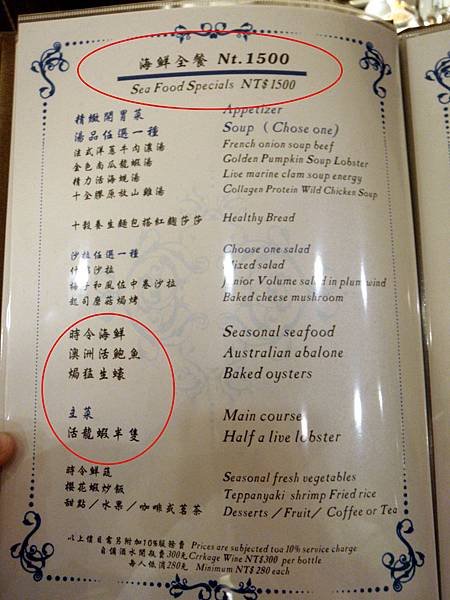 海鮮全餐 Nt.1500
Sea Food Specials NT$1500
精緻開胃菜 Appetizer
湯品任選一種 Soup (Chose one)
法式洋蔥牛肉濃湯 French onion soup beef
金色南瓜龍蝦湯 Golden Pumpkin Soup Lobster
精力活海蜆湯 Live marine clam soup energy
十全膠原放山雞湯 Collagen Protein Wild Chicken Soup
十穀養生麵包搭紅麴莎莎 Healthy Bread
沙拉任選一種 Choose one salad
什錦沙拉 Mixed salad
梅子和風佐中卷沙拉 Junior Volume salad in plum wind
起司磨菇焗烤 Baked cheese mushroom
時令海鮮 Seasonal seafood
澳洲活鮑魚 Australian abalone
焗猛生蠔 Baked oysters
主菜 Main course
活龍蝦半隻 Half a live lobster
時令鮮蔬 Seasonal fresh vegetables
櫻花蝦炒飯 Teppanyaki shrimp Fried rice
甜點／水果／咖啡或茗茶 Desserts /Fruit/ Coffee or Tea
以上價目需另附加10%服務費 Prices are subjected toa 10% service charge
自備酒水開瓶費300元 Crrkage Wine NT$300 per bottle
每人低消280元 Minimum NT$280 each